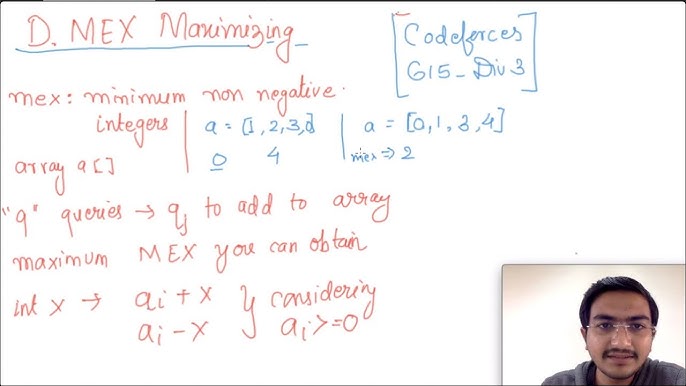 D. MEX Maximizing
Codeforces
615_Div3
mex: minimum non negative
integers
a = [1, 2, 3, 0]
0 4
a = [0, 1, 3, 4]
mex => 2
array a[]
"q" queries → qj to add to array
maximum MEX you can obtain
int x → ai + x
ai - x
considering
ai >= 0